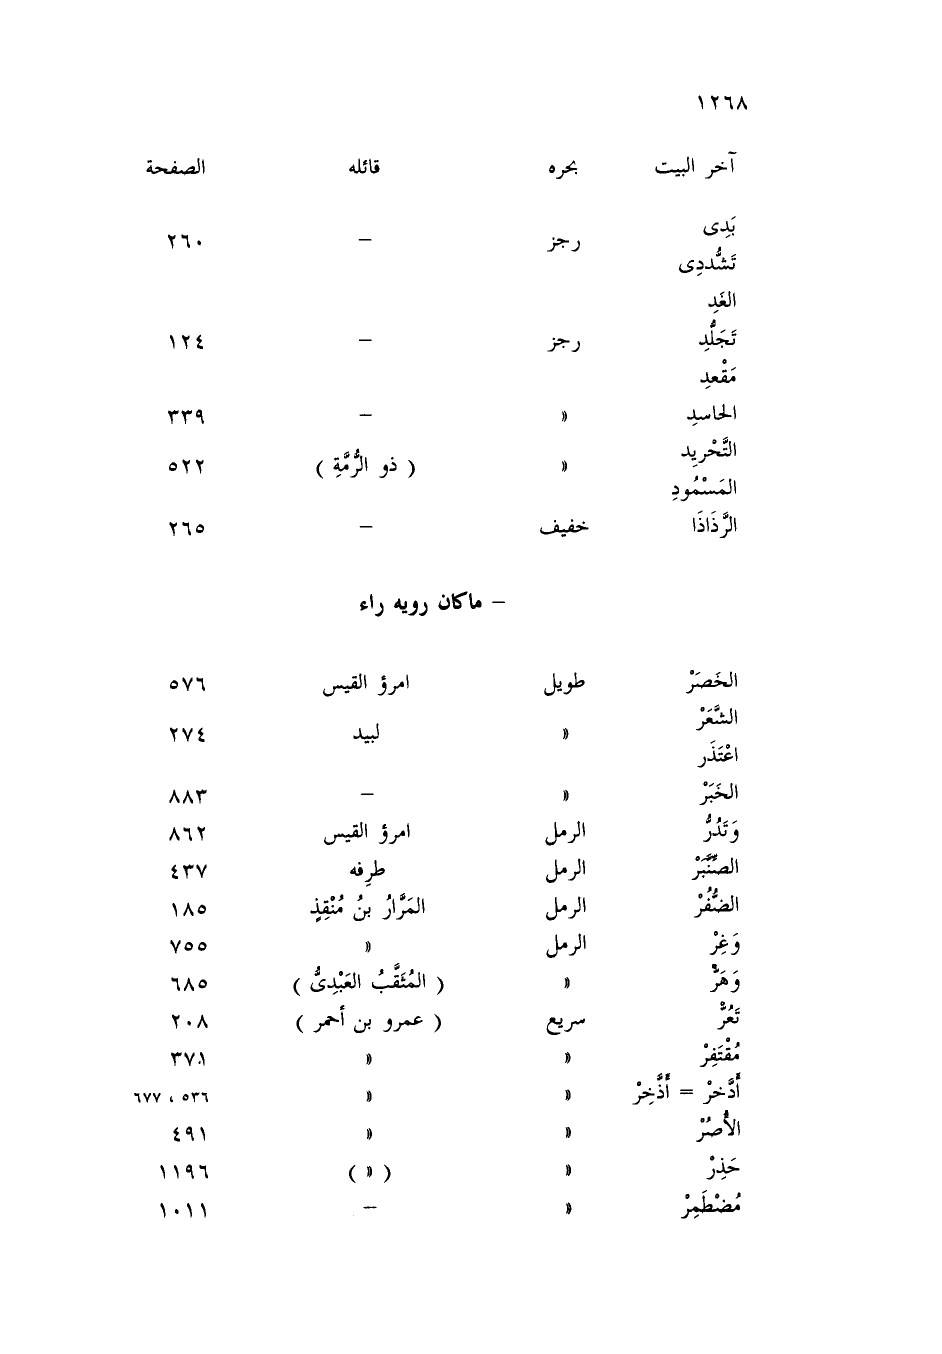 ١٢٦٨
آخر البيت بحره قائله الصفحة
بَدِى
رجز – ٢٦٠
تَشُّددِى
الغَدِ
تَجَلُّدِ رجز – ١٢٤
مَقْعدِ
الحاسدِ » – ٣٣٩
التَّحْريِد
» ( ذو الرُّمَّةِ ) ٥٢٢
المَسْمُودِ
الرَّذَاذَا خفيف – ٢٦٥
– ماكان رويه راء
الخَصَرْ طويل امرؤ القيس ٥٧٦
الشَّعَرْ
» لبيد ٢٧٤
اعْتَذَر
الخَبَرْ » – ٨٨٣
وَتَدُرُّ الرمل امرؤ القيس ٨٦٢
الصِّنَّبَرْ الرمل طرِفه ٤٣٧
الضُّفُرْ الرمل المَرَّارُ بنُ مُنْقِذٍ ١٨٥
وَغِرْ الرمل » ٧٥٥
وَهَرّْ » ( المُثَقَّبُ العَبْدِىُّ ) ٦٨٥
تَعُرّْ سريع ( عمرو بن أحمر ) ٢٠٨
مُقْتَفِرْ » » ٣٧١
أَدَّخرْ = أَذَّخِرْ » » ٥٣٦ ، ٦٧٧
الأُصُرْ » » ٤٩١
حَذِرْ » ( » ) ١١٩٦
مُضْطَمِرْ » – ١٠١١